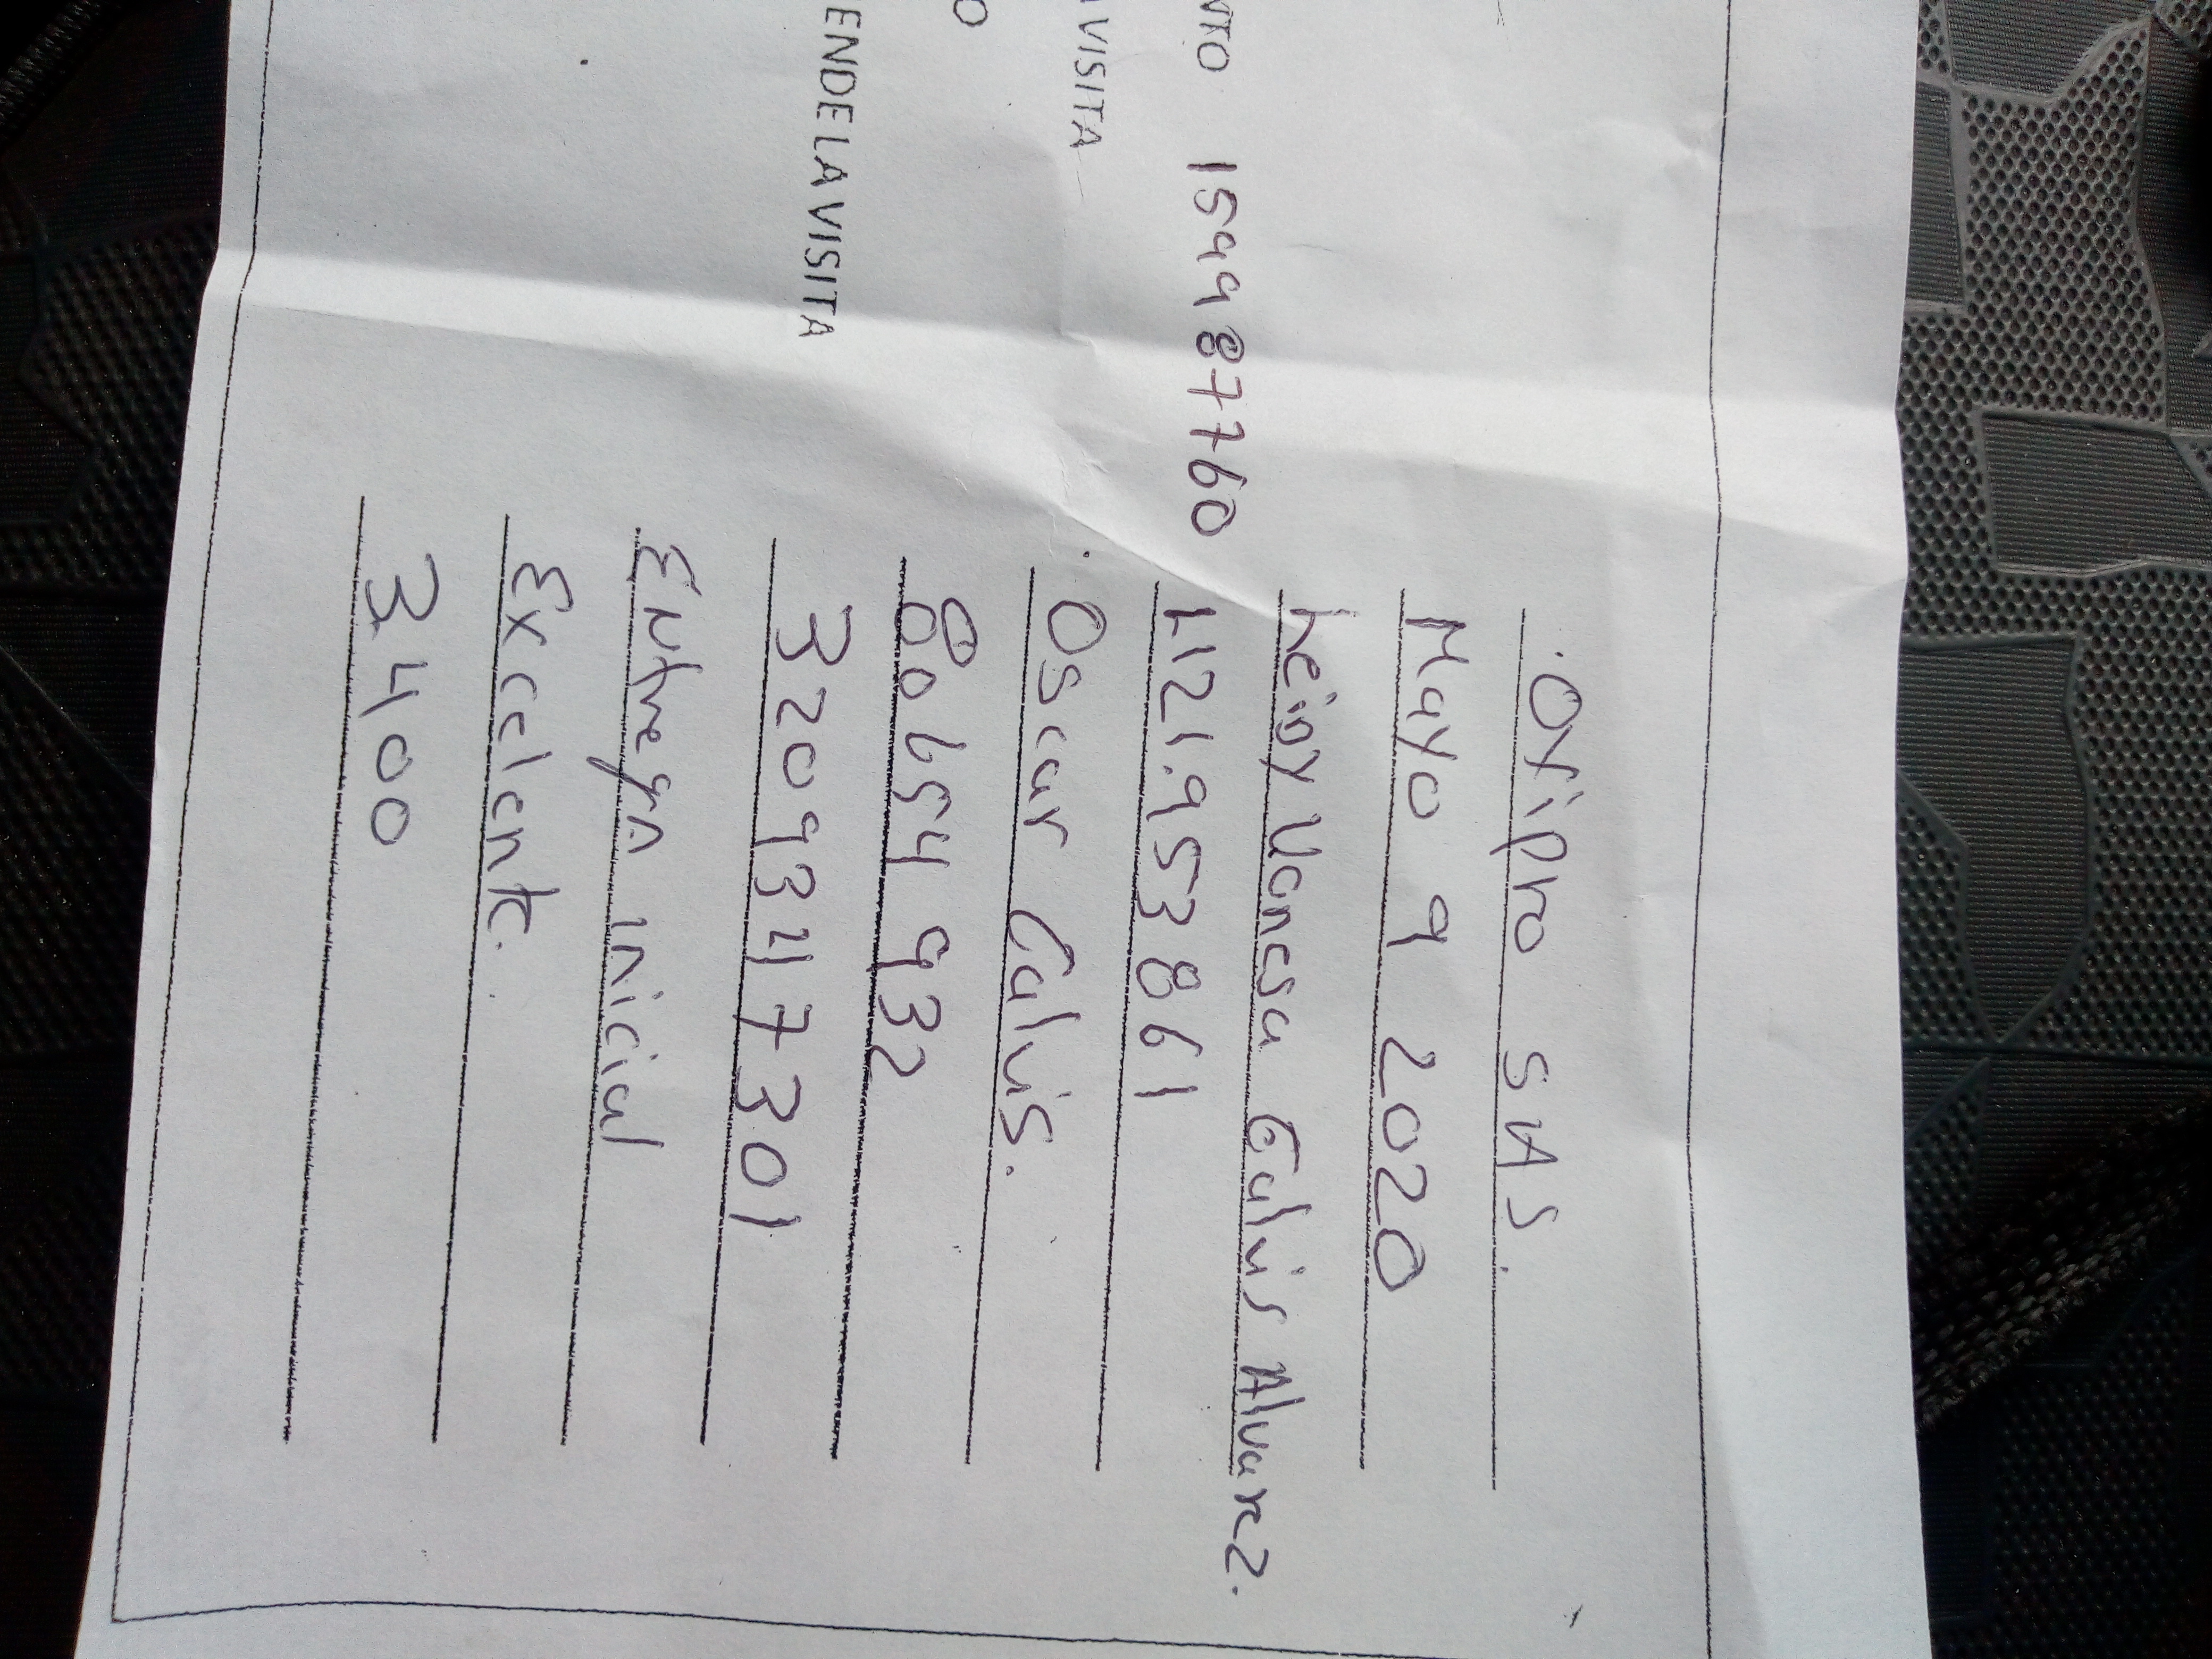 Oxipro SAS.
Mayo 9 2020
Leidy Vanesa Galvis Alvarez.
NTO 159987760 1121.953861
A VISITA Oscar Galvis.
O 80654932
ENDE LA VISITA 3209347301
Entrega Inicial
Excelente.
3400